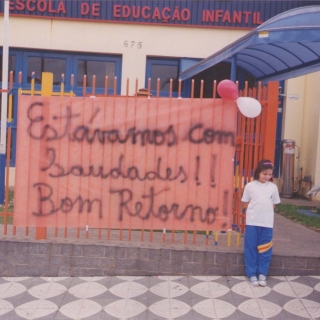 ESCOLA DE EDUCAÇÃO INFANTIL
675
Estávamos com
Saudades!!
Bom Retorno!